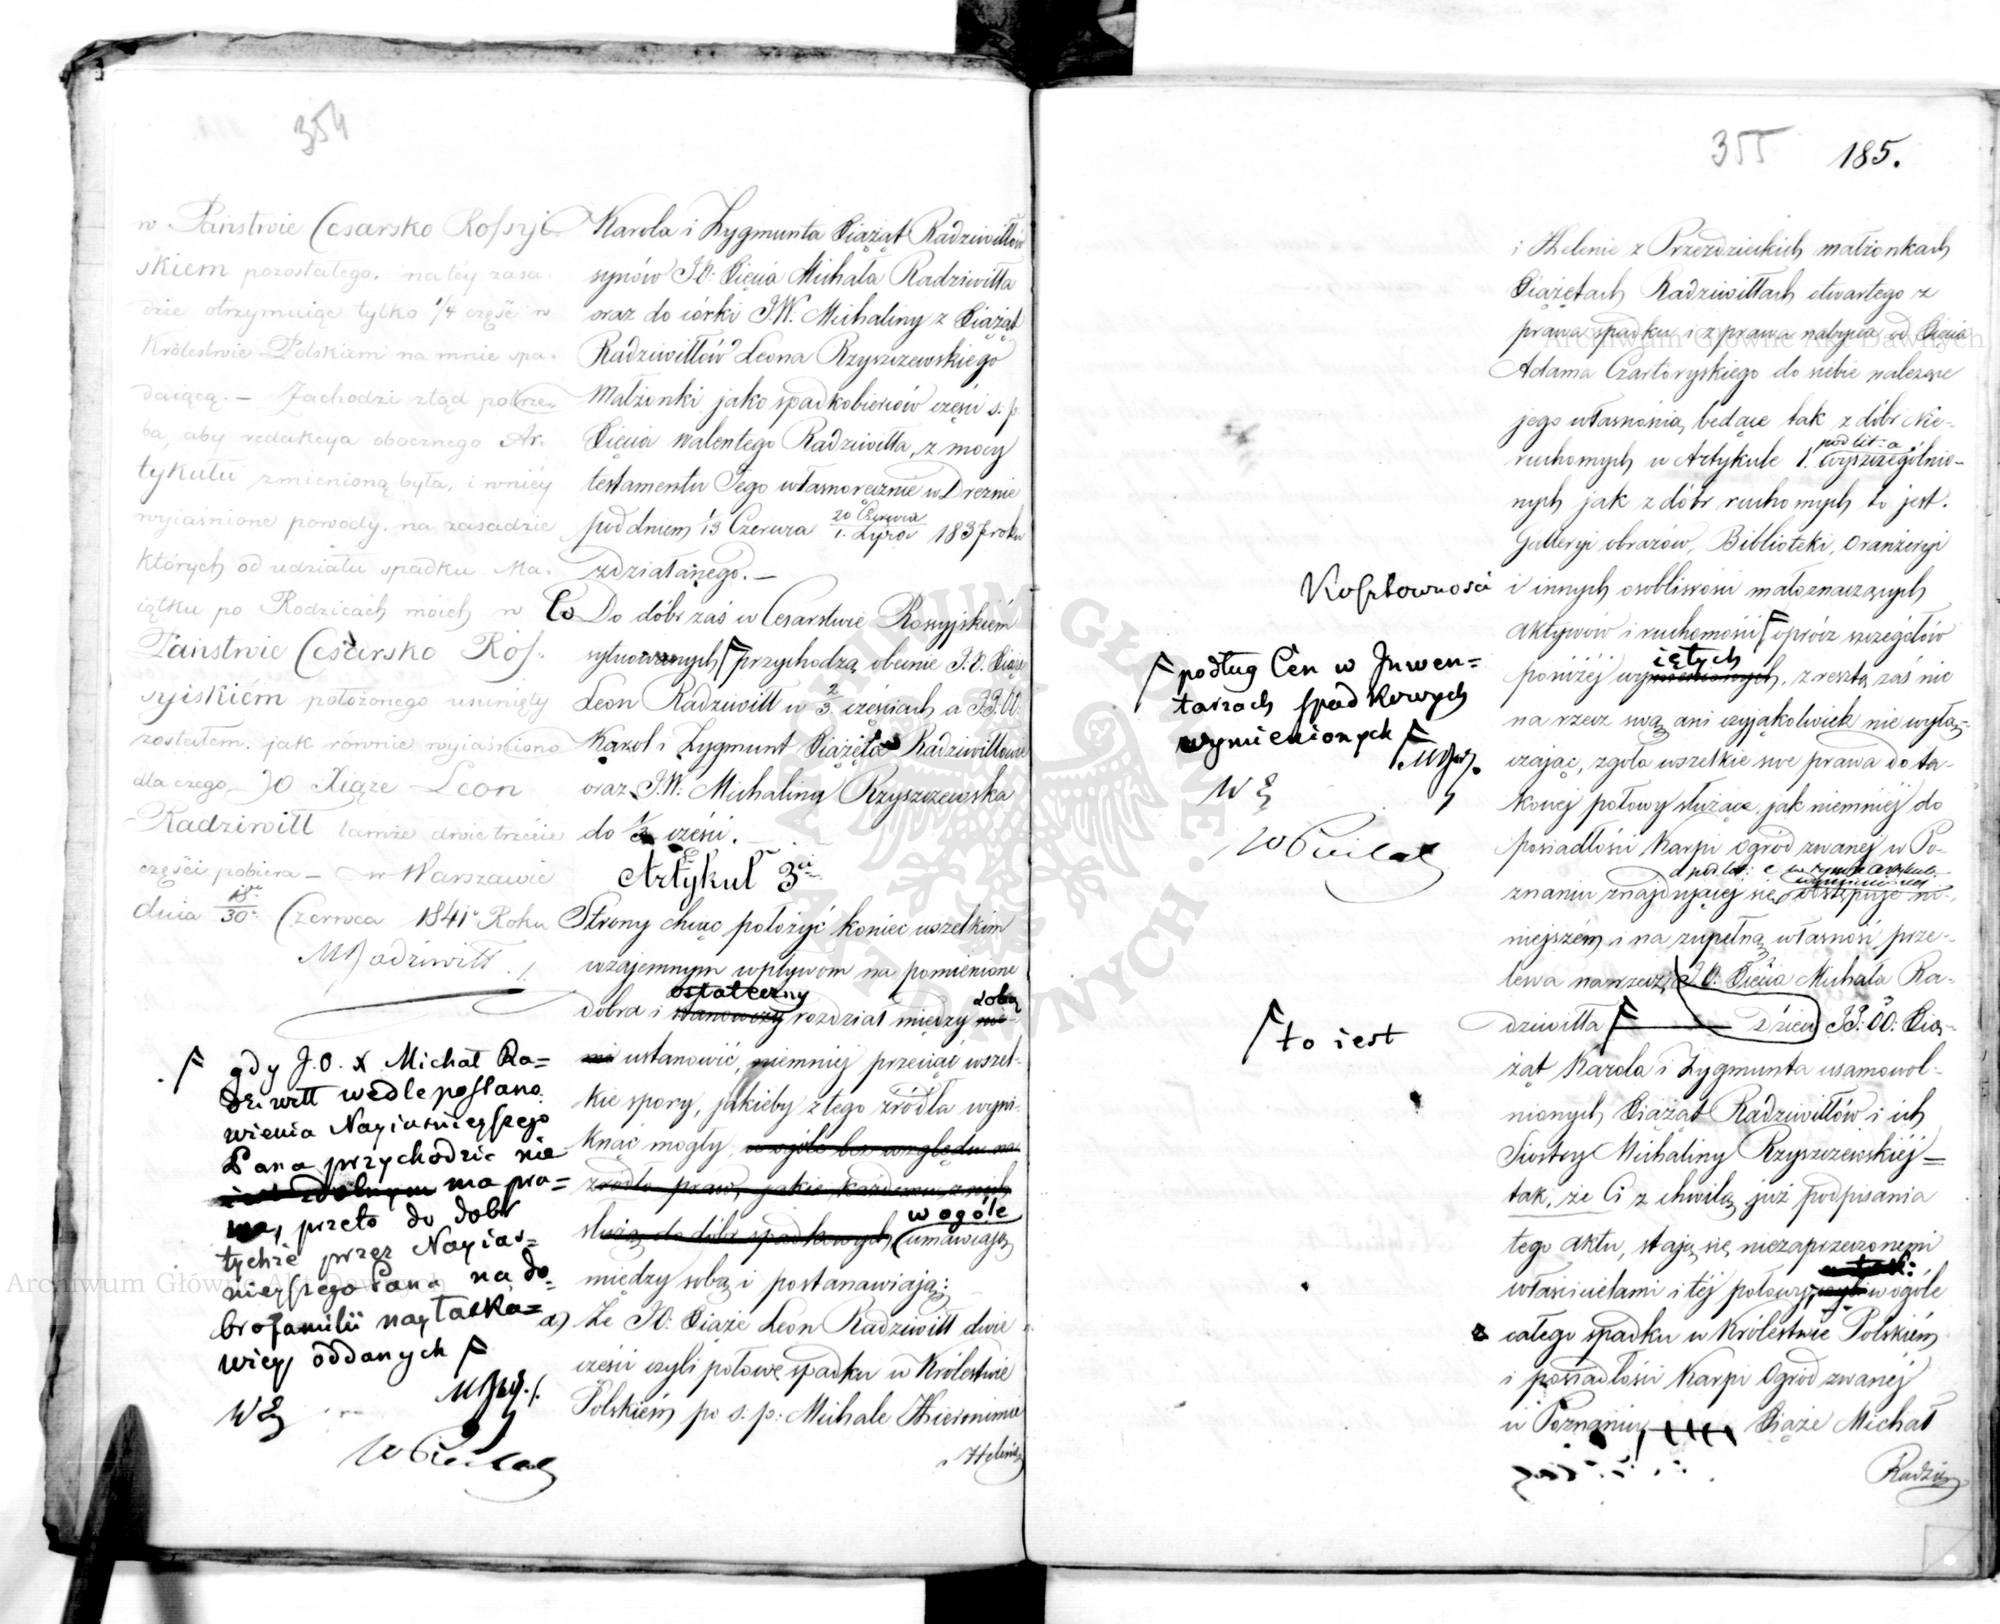 354
w Państwie Cesarsko Rossyi-
skiem pozostałego. na téy zasa-
dzie otrzymuiąc tylko 1/4 część w
Królestwie Polskiem na mnie spa-
daiącą. — Zachodzi ztąd potrze-
ba, aby redakcya obocznego Ar-
tykułu zmienioną była, i wniéy
wyiaśnione powody, na zasadzie
których od udziału spadku Ma-
iątku po Rodzicach moich w
Państwie Cesarsko Ros-
syiskiém położonego usunięty
zostałem. jak równie wyiaśniono
dla czego JO Xiąże Leon
Radziwiłł tamże dwie trzecie
części pobiera — w Warszawie
dnia 18/30 Czerwca 1841 Roku
MRadziwiłł
gdy J.O. X Michał Ra=
dziwiłł wedle postano
wienia Nayiaśnieyszego
Pana przychodzić nie
ma pra=
wa, przeto do dobr
tychże przez Nayias=
nieyszego Pana na do=
bro familii nayłaska=
wiey oddanych
Karola i Zygmunta Xiążąt Radziwiłłów
synów JO: Xięcia Michała Radziwiłła
oraz do córki J.W. Michaliny z Xiążąt
Radziwiłłów Leona Rzyszczewskiego
Małżonki jako spadkobierców części s. p.
Xięcia Walentego Radziwiłła, z mocy
testamentu Jego własnoręcznie w Dreznie
pod dniem 1/13 Czerwca 20 Czerwca/1. Lipca 1837 roku
zdziałanego. —
Co Do dóbr zaś w Cesarstwie Rossyjskiém
sytuowanych przychodzą obecnie J.O. Xiąże
Leon Radziwiłł w 2/3 częściach a JJ.OO.
Karol i Zygmunt Xiążęta Radziwiłłowie
oraz J.W. Michalina Rzyszczewska
do 1/3 części.
Artykuł 3ci
Strony chcąc położyć koniec wszelkim
wzajemnym wpływom na pomienione
dobra i ostateczny stanowczy rozdział między sobą
ustanowić, niemniej przeciąć wszel-
kie spory, jakieby z tego źródła wyni-
knąć mogły, w ogóle bez względu na
źrodło praw, jakie każdemu z nich
służą do dóbr spadkowych, w ogóle umawiają
między sobą i postanawiają:
a) Że JO: Xiąże Leon Radziwiłł dwie
części czyli połowę spadku w Królestwie
Polskiém po s. p: Michale Hieronimie
i Helenie
355 185.
i Helenie z Przezdzieckich małżonkach
Xiążętach Radziwiłłach otwartego z
prawa spadku i z prawa nabycia od Xięcia
Adama Czartoryskiego do siebie należące
jego własnością będące tak z dóbr Nie-
ruchomych w Artykule 1. pod lit: a wyszczególnio-
nych jak z dóbr ruchomych to jest.
Galleryi obrazów, Biblioteki, Oranżeryi
Kosztowności i innych osobliwości małoznaczących
aktywów i ruchomości oprócz szczegółów
poniżéj wyiętych, zresztą zaś nic
na rzecz swą ani czyjąkolwiek nie wyłą-
czając, zgoła wszelkie swe prawa do ta-
kowej połowy służące, jak niemniéj do
posiadłości Karpi Ogród zwanéj w Po-
znaniu znajdującej się, odstępuje ni-
niejszém i na zupełną własność prze-
lewa na rzecz J.O. Xięcia Michała Ra-
dziwiłła Dzieci JJ: OO: Xią-
żąt Karola i Zygmunta usamowol-
nionych Xiążąt Radziwiłłów i ich
Siostry Michaliny Rzyszczewskiéj —
tak, że Ci z chwilą już podpisania
tego aktu, stają się niezaprzeczonemi
właścicielami i téj połowy, w ogóle
całego spadku w Królestwie Polskiém
i posiadłości Karpi Ogród zwanéj
w Poznaniu, Xiąże Michał
Radziw
podług Cen w Inwen=
tarzach spadkowych
wymienionych
to iest
Archiwum Główne Akt Dawnych
Archiwum Główne Akt Dawnych
ARCHIWUM GŁÓWNE AKT DAWNYCH